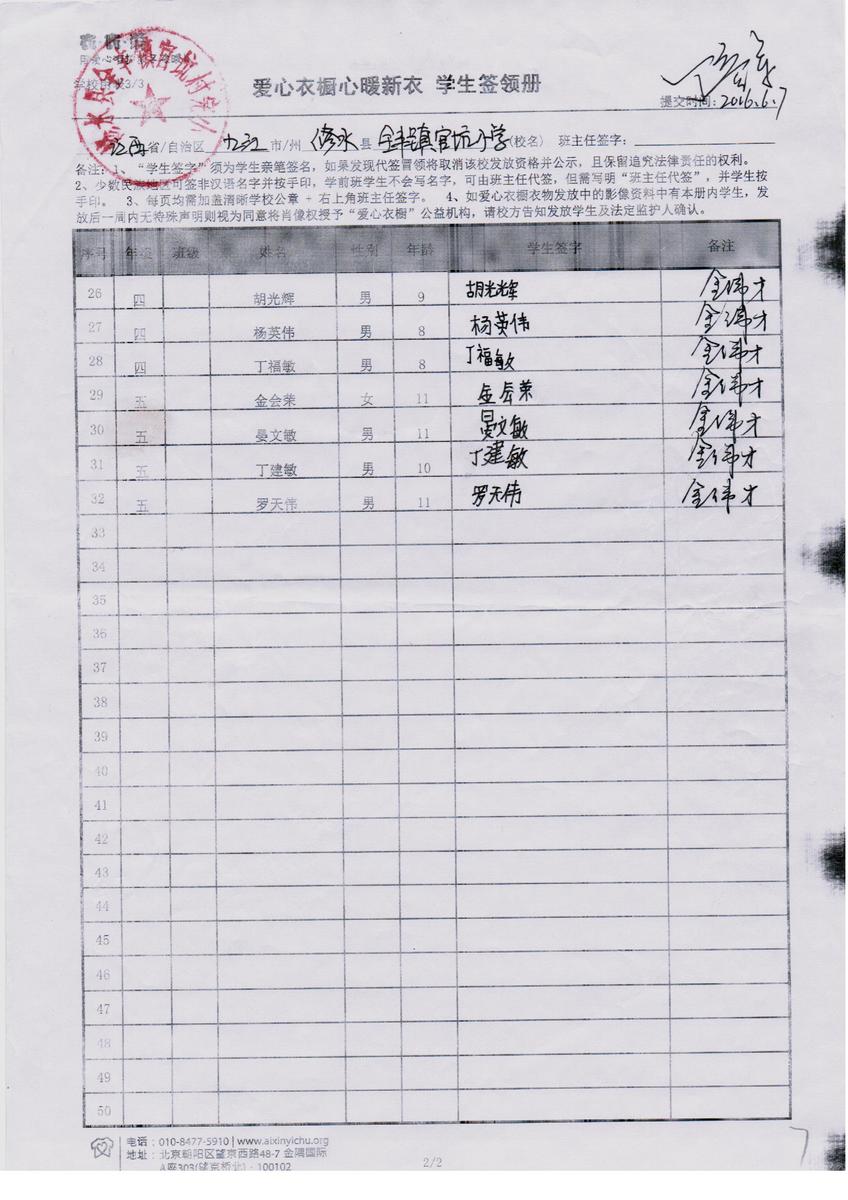 爱心衣橱心暖新衣 学生签领册
提交时间：2016.6.7
江西 省/自治区 九江 市/州 修水 县 全丰镇官坑小学 (校名) 班主任签字：
备注：1、“学生签字”须为学生亲笔签名，如果发现代签冒领将取消该校发放资格并公示，且保留追究法律责任的权利。
2、少数民族地区可签非汉语名字并按手印，学前班学生不会写名字，可由班主任代签，但需写明“班主任代签”，并学生按
手印。 3、每页均需加盖清晰学校公章 + 右上角班主任签字。 4、如爱心衣橱衣物发放中的影像资料中有本册内学生，发
放后一周内无特殊声明则视为同意将肖像权授予“爱心衣橱”公益机构，请校方告知发放学生及法定监护人确认。
序号 年级 班级 姓名 性别 年龄 学生签字 备注
26 四 胡光辉 男 9 胡光辉 金伟才
27 四 杨英伟 男 8 杨英伟 金伟才
28 四 丁福敏 男 8 丁福敏 金伟才
29 五 金会荣 女 11 金会荣 金伟才
30 五 晏文敏 男 11 晏文敏 金伟才
31 五 丁建敏 男 10 丁建敏 金伟才
32 五 罗天伟 男 11 罗天伟 金伟才
33
34
35
36
37
38
39
40
41
42
43
44
45
46
47
48
49
50
电话：010-8477-5910 | www.aixinyichu.org
地址：北京朝阳区望京西路48-7 金隅国际
A座303(望京桥北) · 100102
2/2
7